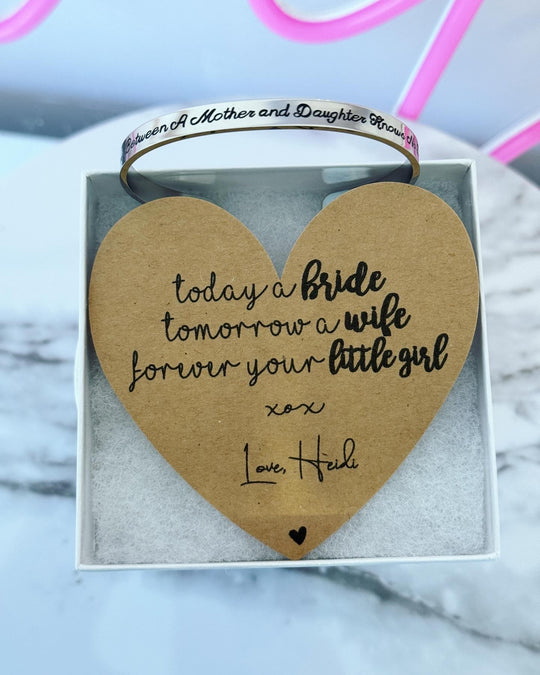 Between A Mother and Daughter Knows
today a bride
tomorrow a wife
forever your little girl
xox
Love, Heidi